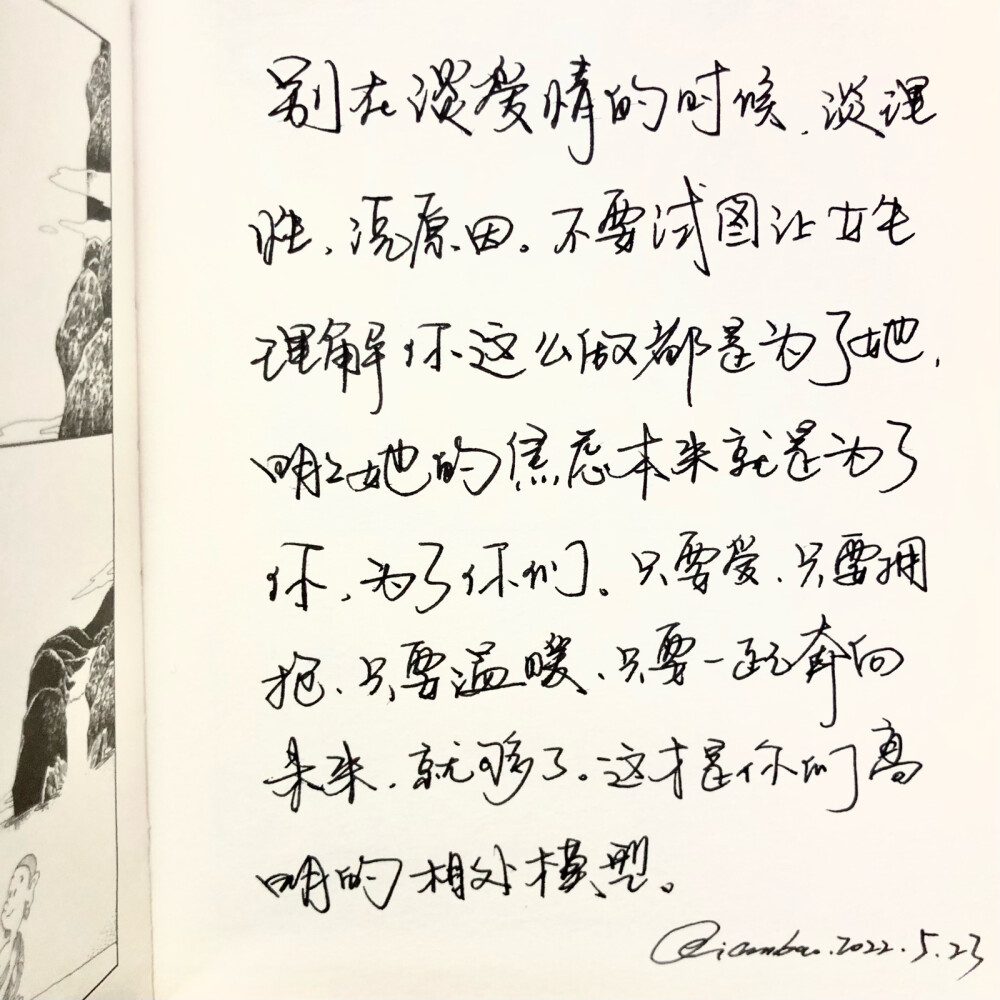 别在谈爱情的时候，谈理
性，谈原因。不要试图让女生
理解你这么做都是为了她，
明明她的焦虑本来就是为了
你，为了你们。只要爱、只要拥
抱、只要温暖、只要一起奔向
未来，就够了。这才是你们高
明的相处模型。
2022.5.23